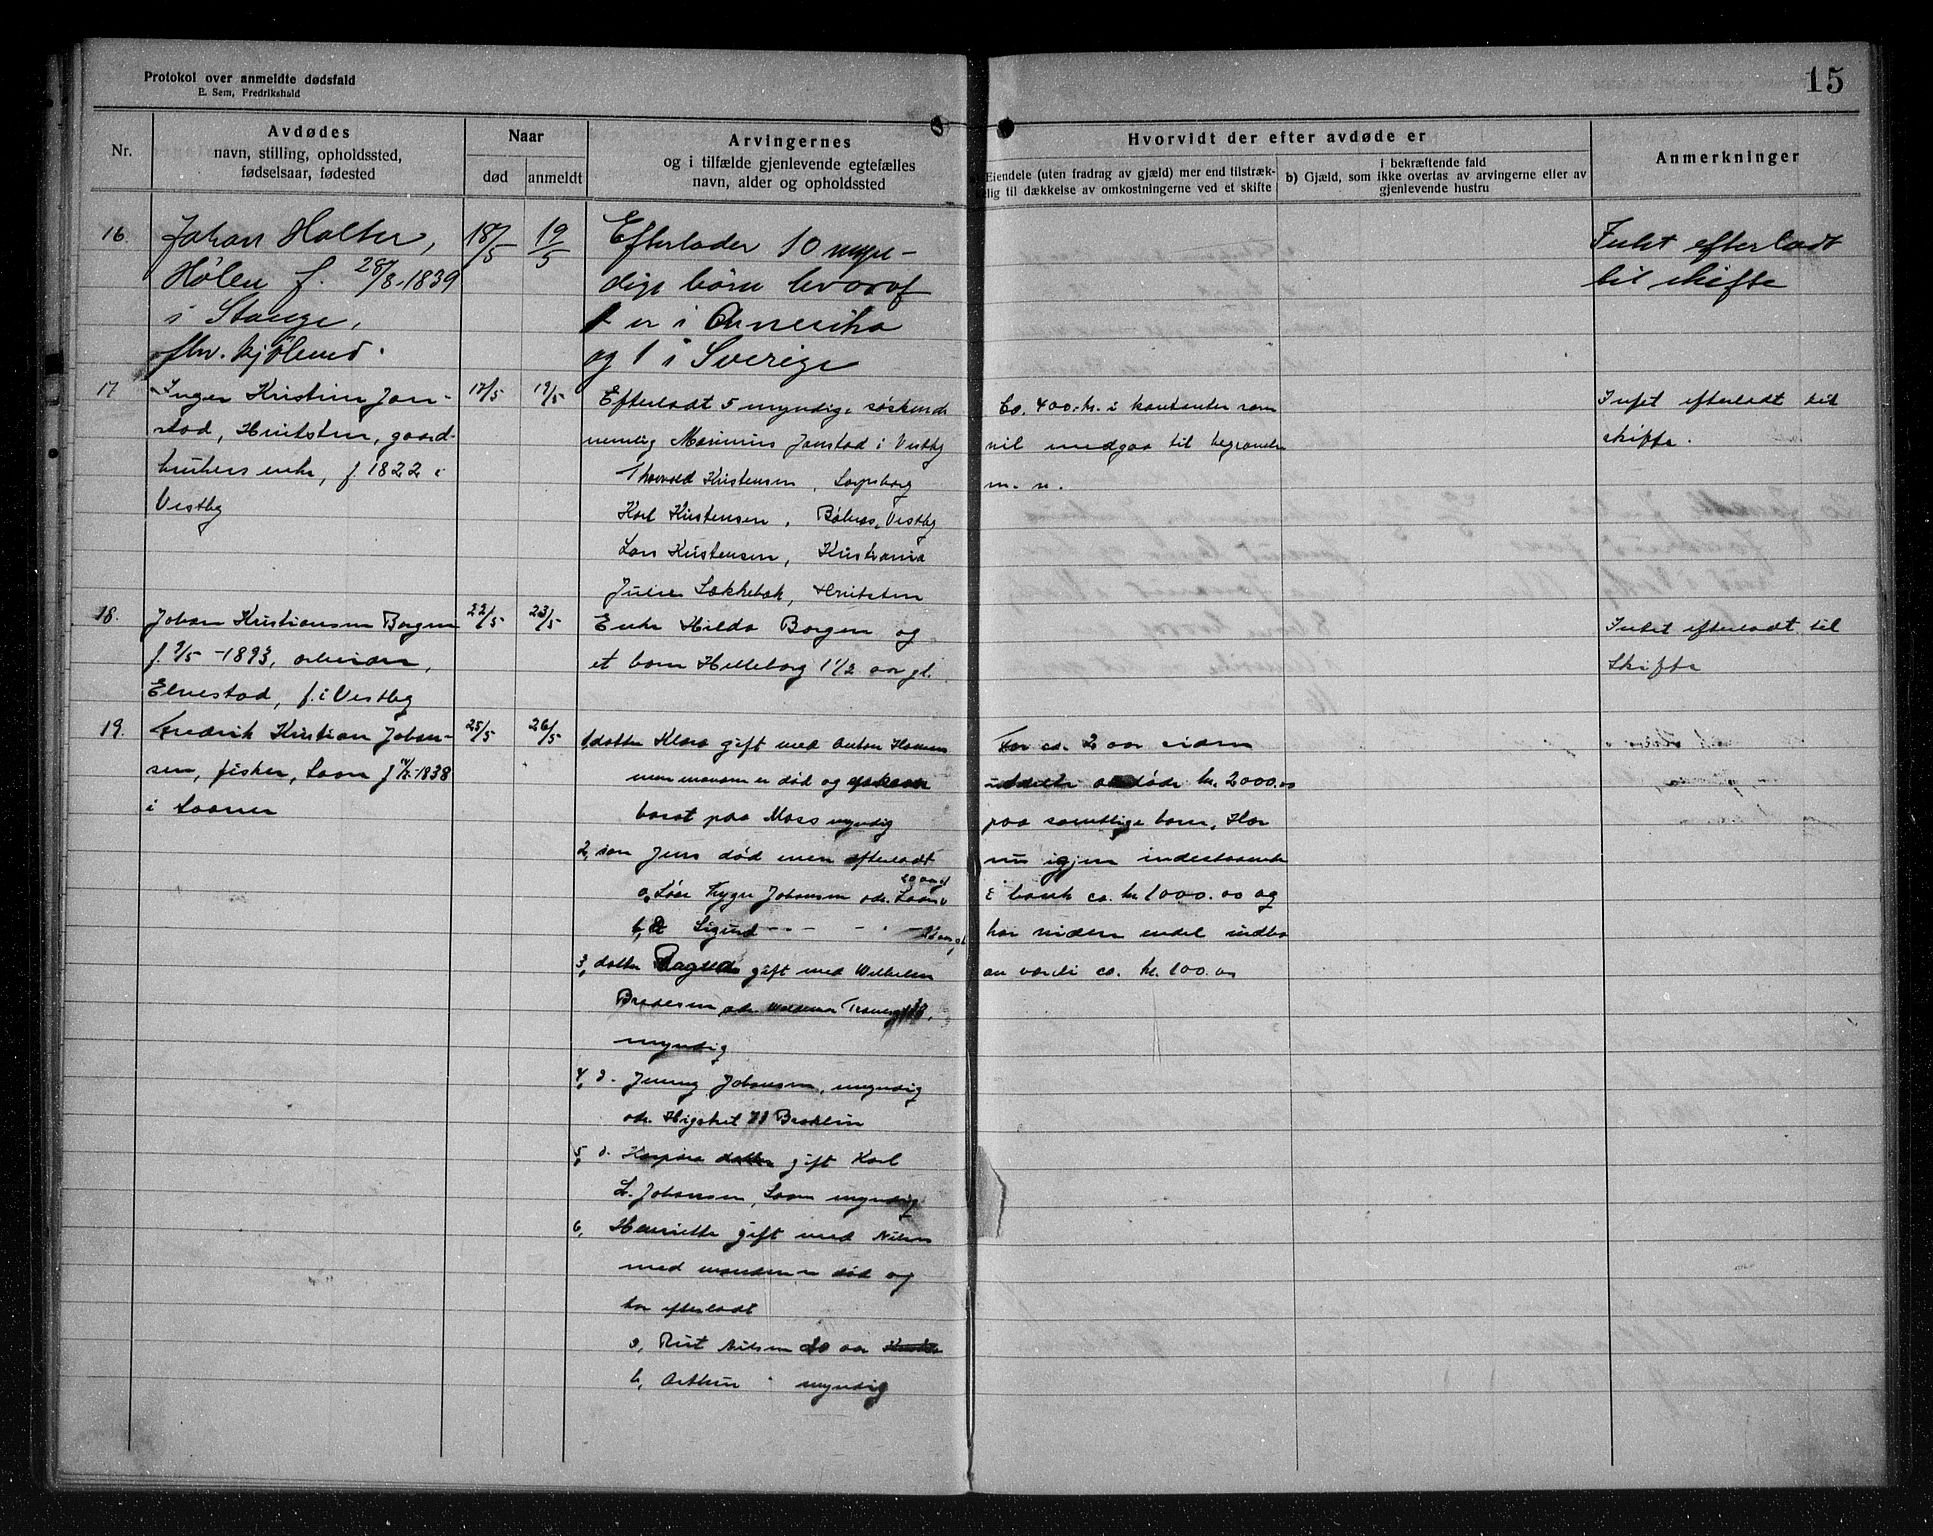 Protokol over anmeldte dødsfald
E. Sem, Fredrikshald
15
Nr.
Avdødes
navn, stilling, opholdssted,
fødselsaar, fødested
Naar
død
anmeldt
Arvingernes
og i tilfælde gjenlevende egtefælles
navn, alder og opholdssted
Hvorvidt der efter avdøde er
Eiendele (uten fradrag av gjæld) mer end tilstræk-
lig til dækkelse av omkostningerne ved et skifte
i bekræftende fald
b) Gjæld, som ikke overtas av arvingerne eller av
gjenlevende hustru
Anmerkninger
16.
Johan Holter,
Hølen f. 28/8-1839
i Stange,
fhv. kjølmed.
18/5
19/5
Efterlader 10 myn-
dige børn hvorav
1 er i Amerika
og 1 i Sverige
Intet efterladt
til skifte
17
Inger Kristine Jon-
stad, Hvitsten, gaard-
brukers enke, f. 1822 i
Vestby
17/5
19/5
Efterladt 5 myndige søskende
nemlig Marinius Jonstad i Vestby
Thorvald Kristensen, Sarpsborg
Karl Kristensen, Vestby
Lars Kristensen, Kristiania
Julie Løkkebak, Hvitsten
Ca. 400 kr. i kontanter som
vil medgaa til begravelse
m. v.
Intet efterladt til
skifte.
18.
Johan Kristiansen Borgen
f. 9/5 -1893, arbeider,
Elvestad, f. i Vestby
22/5
23/5
Enke Hilda Borgen og
et barn Hilleborg 1 1/2 aar gl.
Intet efterladt til
Skifte
19.
Fredrik Kristian Johan-
sen, fisker, Soon f. -1838
i Sooner
25/5
26/5
1 datter Klara gift med Anton Hansen
men manen er død og
bosat paa Moss myndig
2, søn Jens død men efterladt
20 aar
a, Trygve Johansen adr. Soon
b, Sigurd - -
3, datter Dagny gift med Wilhelm
adr.
myndig
4, d. Jenny Johansen, myndig
adr. 71 Broklin
5, d. datter gift Karl
L. Johansen, Soon myndig
6, Henriette gift med Nilsen
med manden er død og
har efterladt
a, Rut Nilsen 20 aar
b, Arthur " myndig
For ca. 2 aar siden
uddelte avdøde kr. 2000.00
paa samtlige barn, Har
nu igjen indestaaende
i bank ca. kr. 1000.00 og
har uden endel indbo
av værdi ca. kr. 100.00